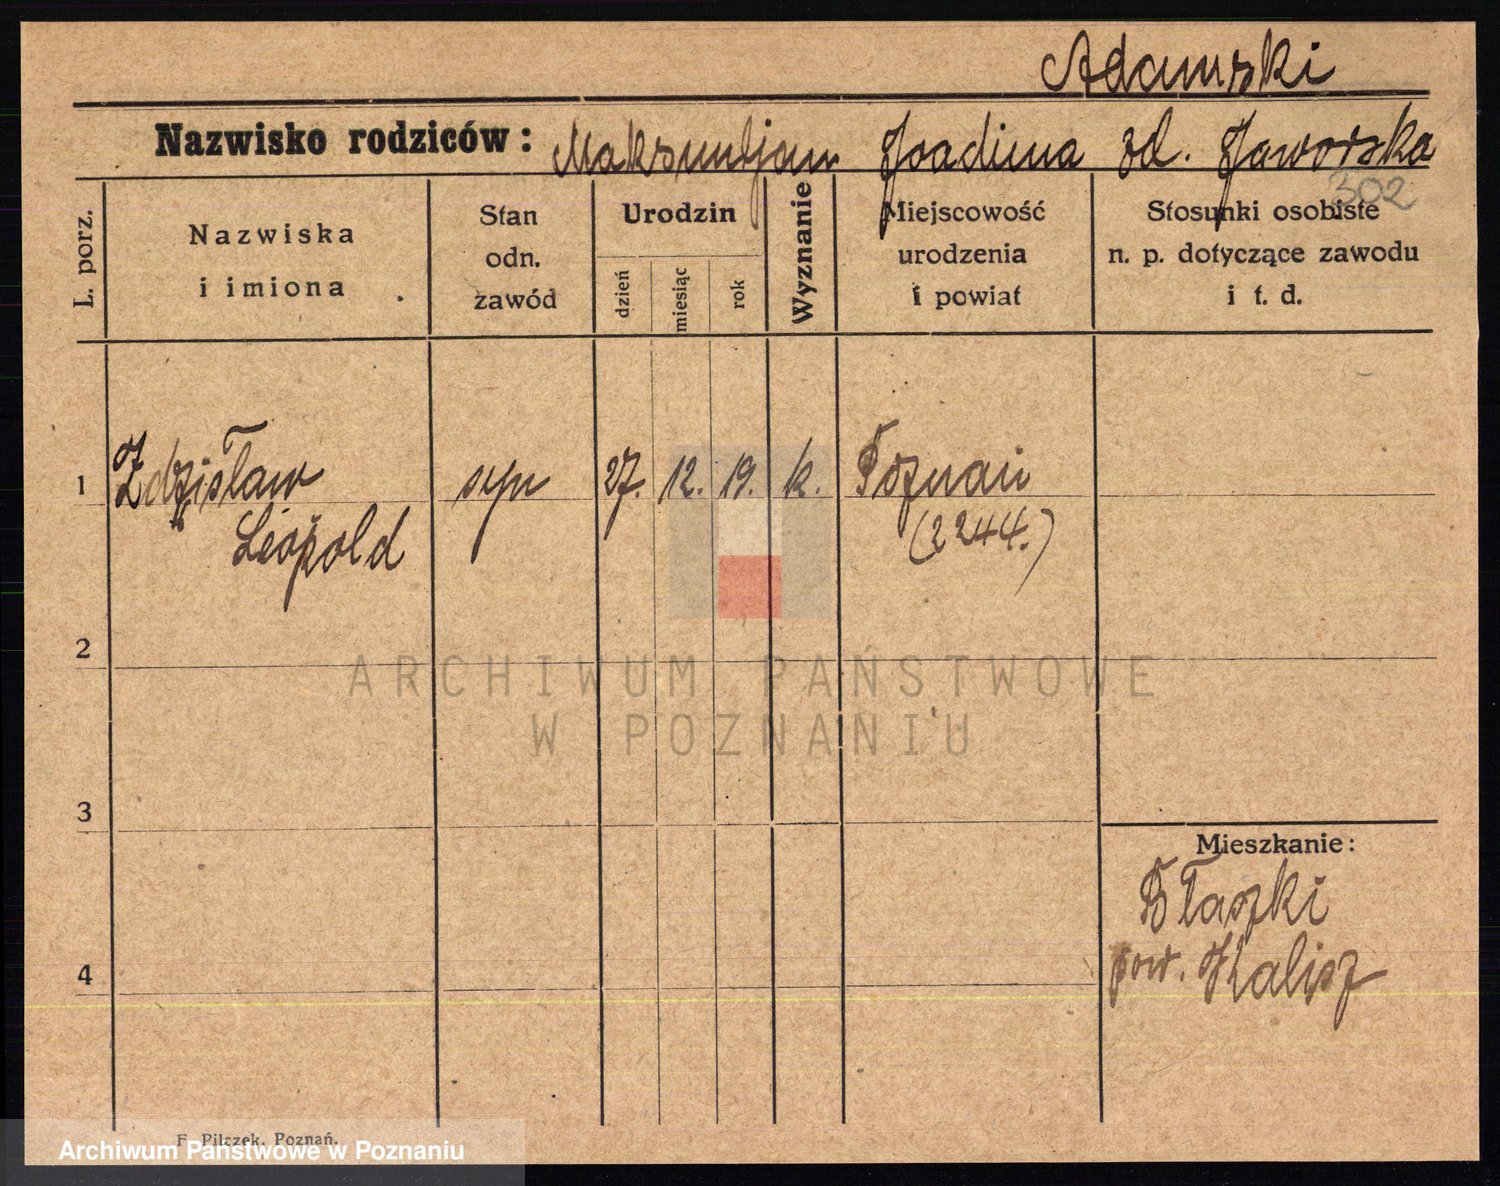 Adamski
Nazwisko rodziców: Maksymiljan Joadina zd. Jaworska
302
L. porz.
Nazwiska
i imiona
Stan
odn.
zawód
Urodzin
dzień
miesiąc
rok
Wyznanie
Miejscowość
urodzenia
i powiat
Stosunki osobiste
n. p. dotyczące zawodu
i t. d.
1 Zdzisław syn 27. 12. 19. k. Poznań
Leopold (2244.)
2
ARCHIWUM PAŃSTWOWE
W POZNANIU
3
Mieszkanie:
Błaszki
4 pow. Kalisz
F. Pilszek, Poznań.
Archiwum Państwowe w Poznaniu